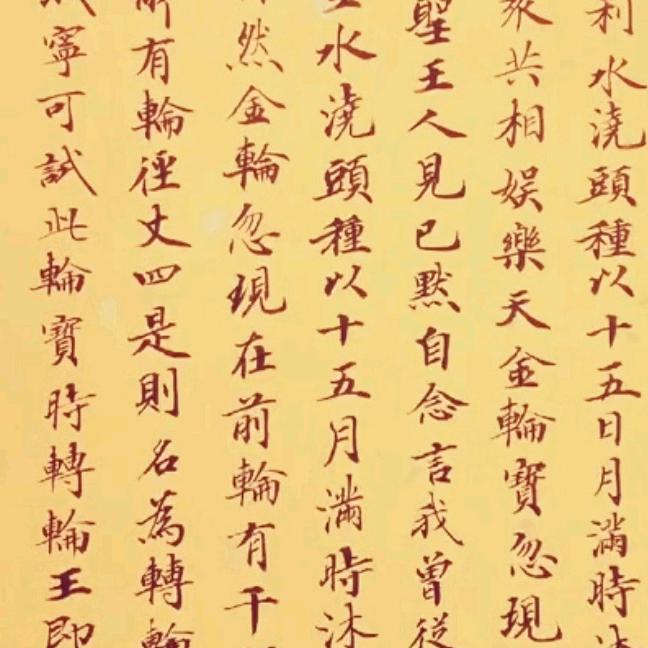 利水澆頭種以十五日月滿時沐
眾共相娛樂天金輪寶忽現
聖王人見已默自念言我曾從
水澆頭種以十五月滿時沐
然金輪忽現在前輪有千
有輪徑丈四是則名為轉輪
寧可試此輪寶時轉輪王即